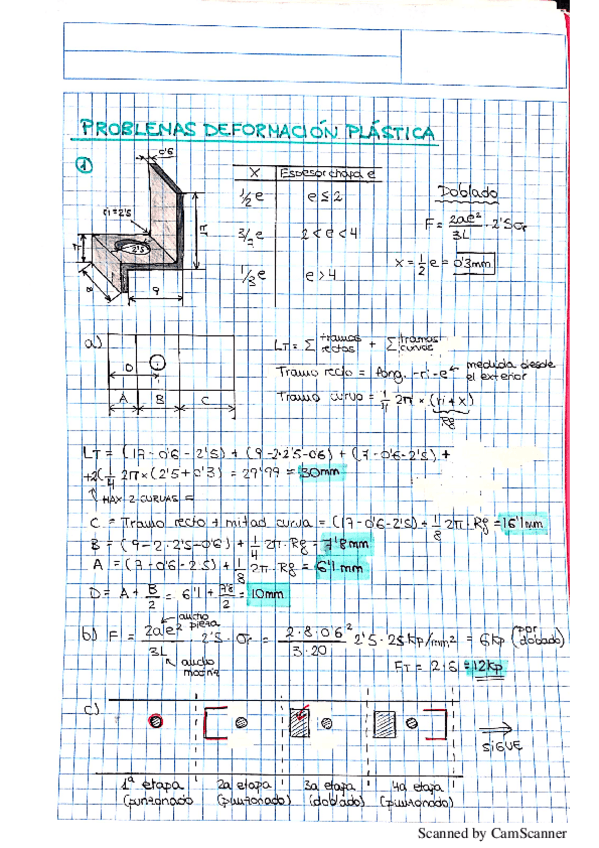 PROBLEMAS DEFORMACIÓN PLÁSTICA
1
0'6
ri=2'5
2'5
17
7
8
9
X Espesor chapa e
1/2 e e ≤ 2
3/2 e 2 < e < 4
1/3 e e > 4
Doblado
F = 2ae²/3L · 2'5σr
x = 1/2 e = 0'3mm
a)
D
A B C
LT = Σ tramos rectos + Σ tramos curvos
Tramo recto = long. - ri - e ← medida desde el exterior
Tramo curvo = 1/4 2π × (ri + x)
Rf
LT = (17 - 0'6 - 2'5) + (9 - 2·2'5 - 0'6) + (7 - 0'6 - 2'5) +
+2(1/4 2π × (2'5 + 0'3) = 29'99 = 30mm
HAY 2 CURVAS =
C = Tramo recto + mitad curva = (17 - 0'6 - 2'5) + 1/8 2π · Rf = 16'1mm
B = (9 - 2 · 2'5 - 0'6) + 1/4 2π · Rf = 7'8mm
A = (7 - 0'6 - 2'5) + 1/8 2π · Rf = 6'1mm
D = A + B/2 = 6'1 + 7'8/2 = 10mm
ancho pieza
b) F = 2ae²/3L 2'5 · σr = 2·8·0'6²/3·20 2'5 · 25 Kp/mm² = 6Kp (por doblado)
ancho
FT = 2·6 = 12Kp
c)
SIGUE
1ª etapa 2a etapa 3a etapa 4a etapa
(punzonado (punzonado) (doblado) (punzonado)
Scanned by CamScanner